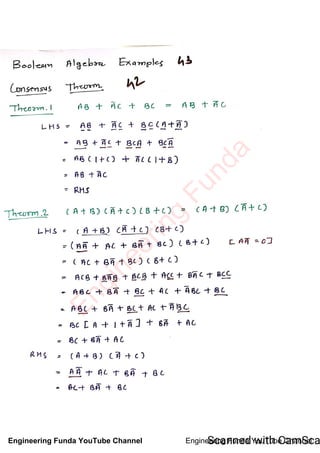 Boolean Algebra Examples 43
Consensus Theorem 42
Theorem.1 AB + A̅C + BC = AB + A̅C
LHS = AB + A̅C + BC(A+A̅)
= AB + A̅C + BCA + BCA̅
= AB(1+C) + A̅C(1+B)
= AB + A̅C
= RHS
Theorem.2 (A+B)(A̅+C)(B+C) = (A+B)(A̅+C)
LHS = (A+B)(A̅+C)(B+C)
= (AA̅ + AC + BA̅ + BC)(B+C) [AA̅ = 0]
= (AC + BA̅ + BC)(B+C)
= ACB + BA̅B + BCB + ACC + BA̅C + BCC
= ABC + BA̅ + BC + AC + A̅BC + BC
= ABC + BA̅ + BC + AC + A̅BC
= BC[A + 1 + A̅] + BA̅ + AC
= BC + BA̅ + AC
RHS = (A+B)(A̅+C)
= AA̅ + AC + BA̅ + BC
= AC + BA̅ + BC
Engineering Funda
Engineering Funda YouTube Channel
Scanned with CamSca